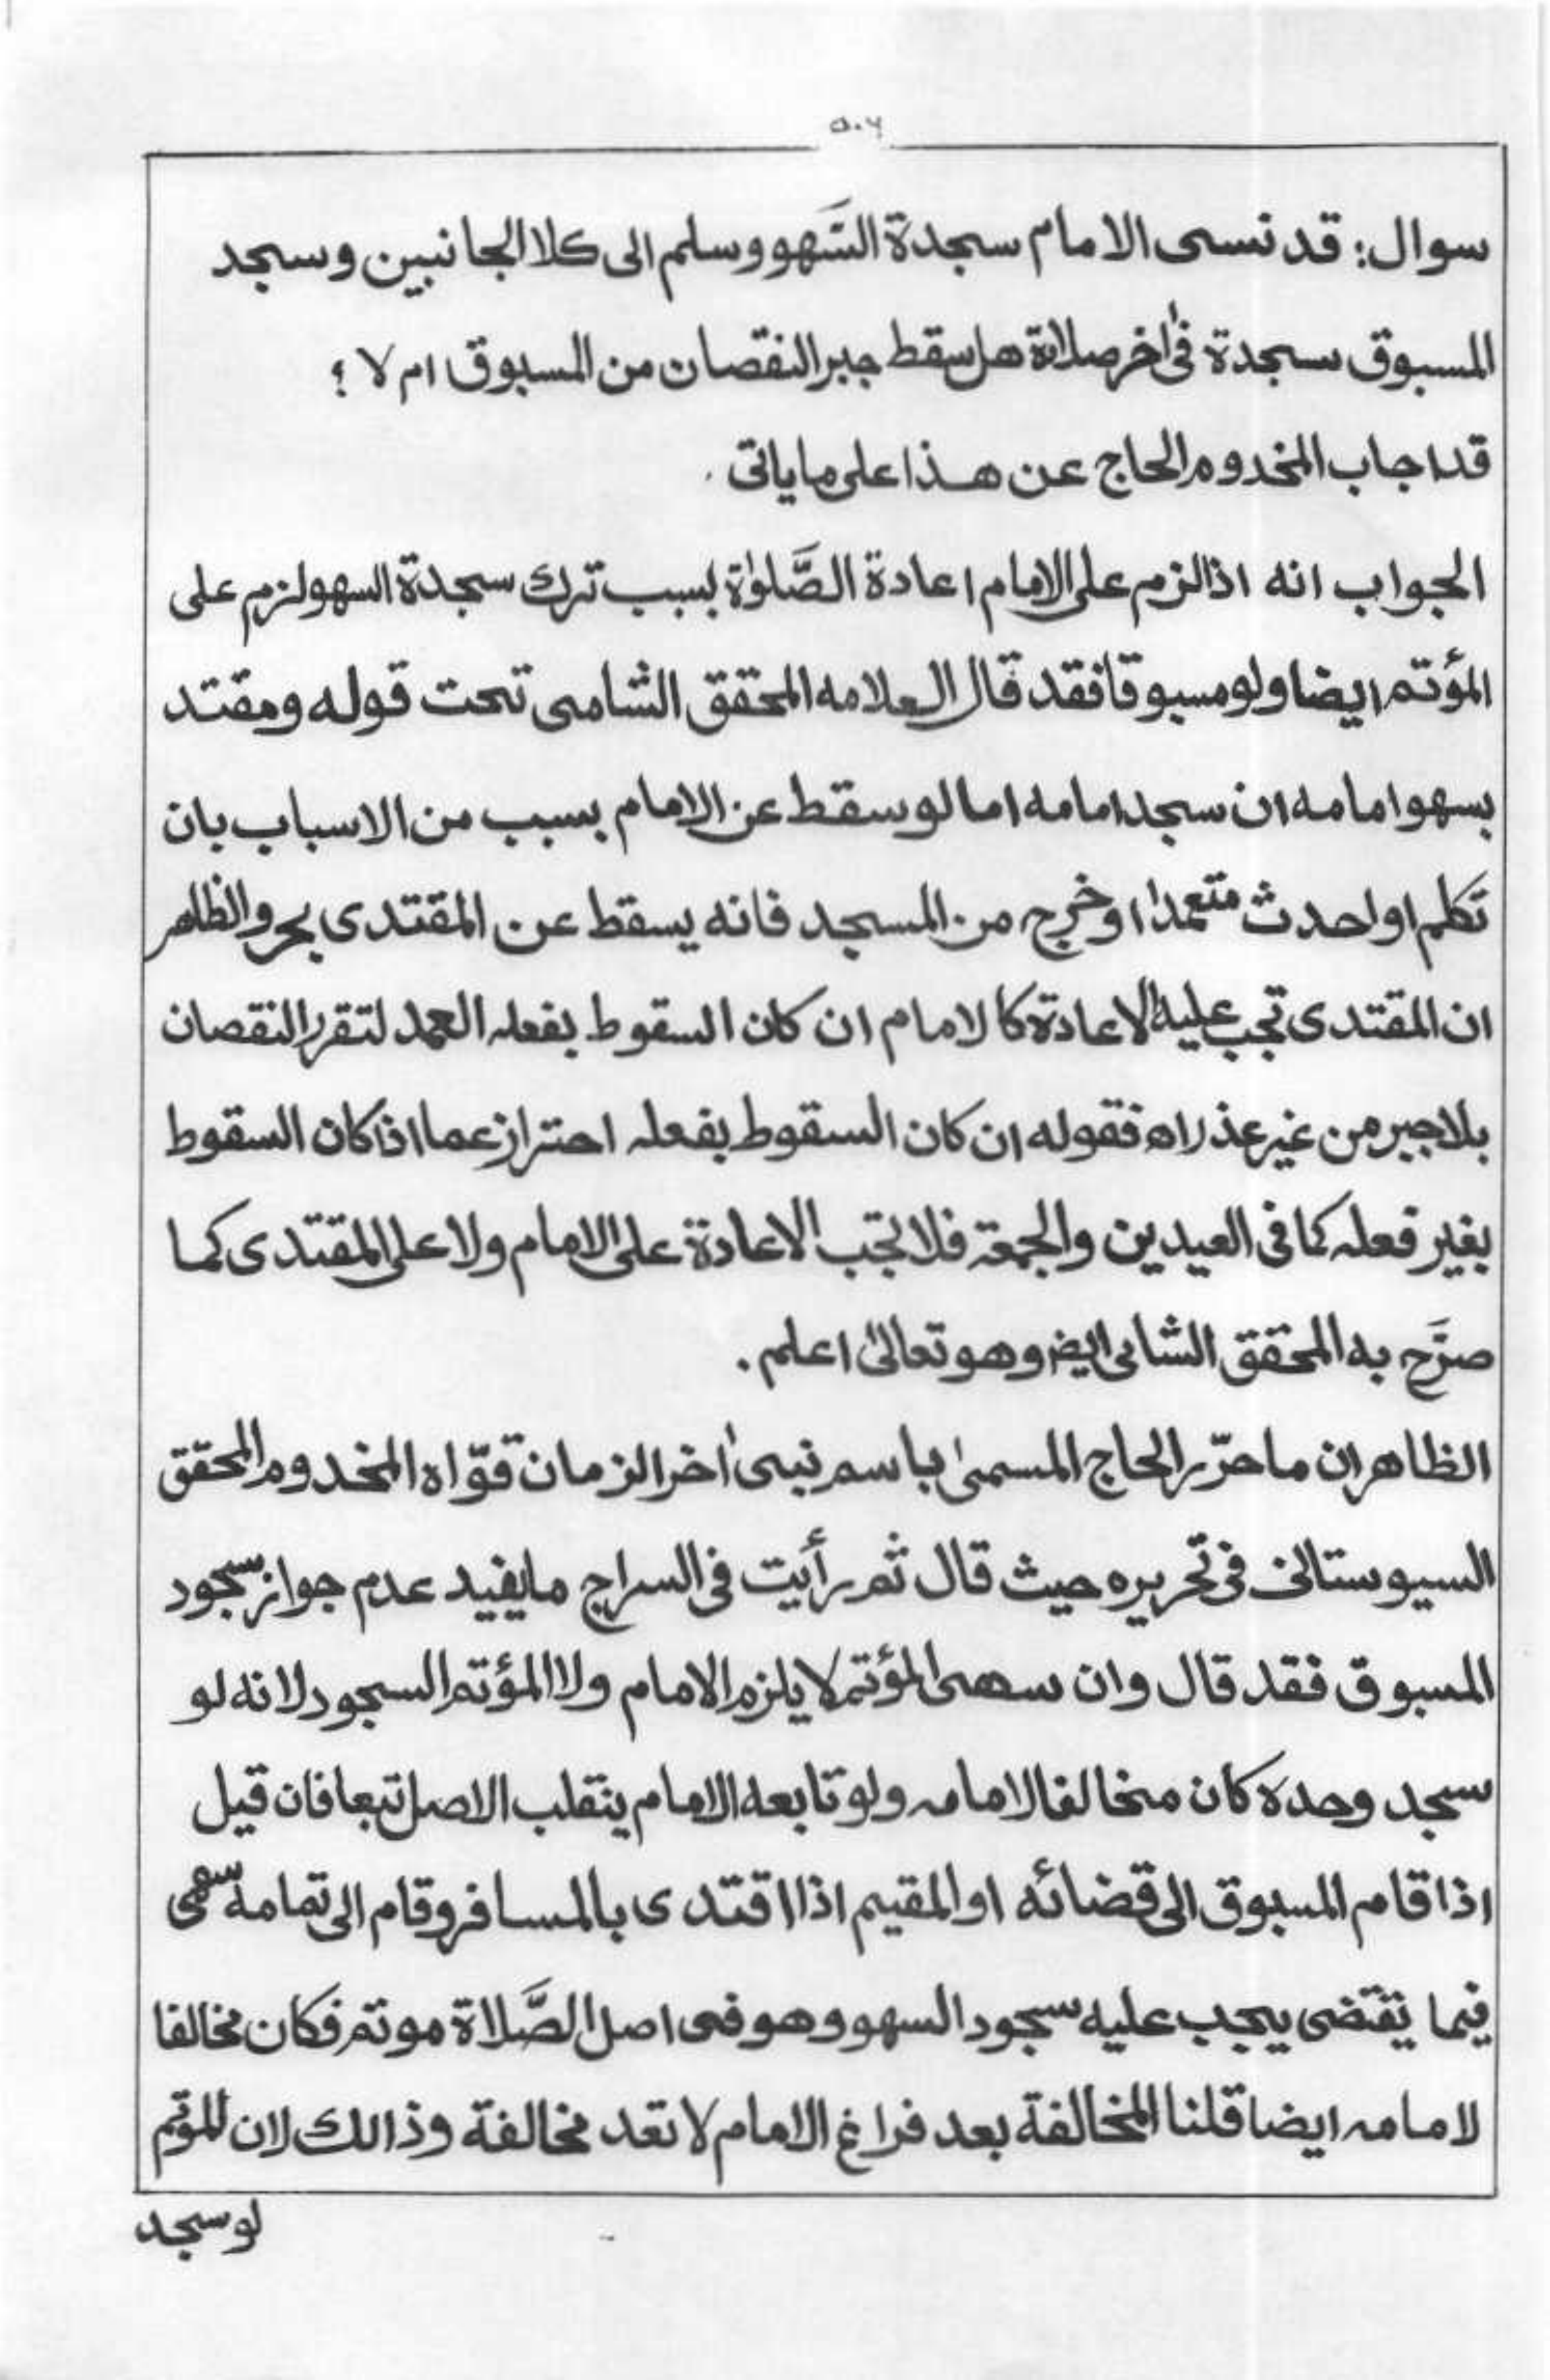 ۵۰۶
سوال: قد نسى الامام سجدة السَّهو وسلم الى كلا الجانبين وسجد
المسبوق سجدة فى اٰخر صلاة هل سقط جبر النقصان من المسبوق ام لا ؟
قد اجاب المخدوم الحاج عن هذا على ما ياتى .
الجواب انه اذا لزم على الامام اعادة الصَّلوٰة بسبب ترك سجدة السهو لزم على
المؤتم ايضا ولو مسبوقا فقد قال العلامه المحقق الشامى تحت قوله ومقتد
بسهو امامه ان سجد امامه اما لو سقط عن الامام بسبب من الاسباب بان
تكلم او احدث متعمدا او خرج من المسجد فانه يسقط عن المقتدى بحر والظاهر
ان المقتدى تجب عليه الاعادة كالامام ان كان السقوط بفعله العمد لتقرر النقصان
بلا جبر من غير عذر اه فقوله ان كان السقوط بفعله احتراز عما اذا كان السقوط
بغير فعله كما فى العيدين والجمعة فلا تجب الاعادة على الامام ولا على المقتدى كما
صرَّح به المحقق الشامى ايضا وهو تعالىٰ اعلم .
الظاهر ان ما حرّر الحاج المسمىٰ باسم نبى اٰخر الزمان قوّاه المخدوم المحقق
السيوستانى فى تحريره حيث قال ثم رأيت فى السراج ما يفيد عدم جواز سجود
المسبوق فقد قال وان سهى المؤتم لا يلزم الامام ولا المؤتم السجود لانه لو
سجد وحده كان مخالفا لامامه ولو تابعه الامام ينقلب الاصل تبعا فان قيل
اذا قام المسبوق الى قضائه او المقيم اذا اقتدى بالمسافر وقام الى تمامه سهى
فيما يقتضى يجب عليه سجود السهو وهو فى اصل الصَّلاة موتم فكان مخالفا
لامامه ايضا قلنا المخالفة بعد فراغ الامام لا تعد مخالفة وذالك لان الموتم
لو سجد